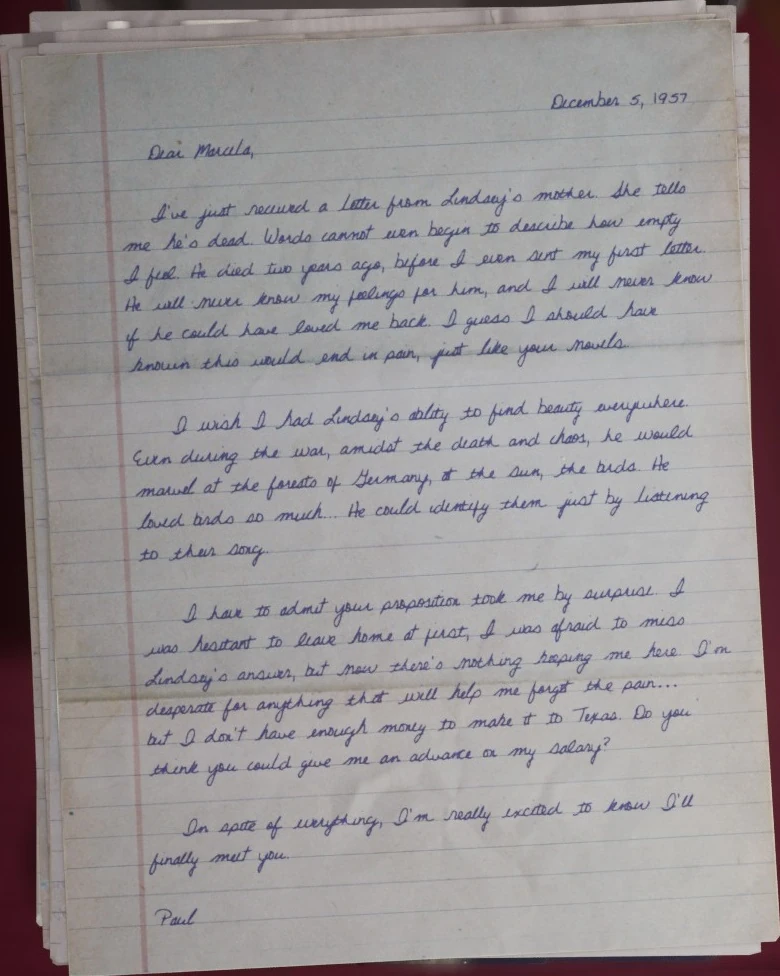 December 5, 1957
Dear Marcela,
I've just received a letter from Lindsey's mother. She tells
me he's dead. Words cannot even begin to describe how empty
I feel. He died two years ago, before I even sent my first letter.
He will never know my feelings for him, and I will never know
if he could have loved me back. I guess I should have
known this would end in pain, just like your novels.
I wish I had Lindsey's ability to find beauty everywhere.
Even during the war, amidst the death and chaos, he would
marvel at the forests of Germany, at the sun, the birds. He
loved birds so much... He could identify them just by listening
to their song.
I have to admit your proposition took me by surprise. I
was hesitant to leave home at first, I was afraid to miss
Lindsey's answer, but now there's nothing keeping me here. I'm
desperate for anything that will help me forget the pain...
but I don't have enough money to make it to Texas. Do you
think you could give me an advance on my salary?
In spite of everything, I'm really excited to know I'll
finally meet you.
Paul